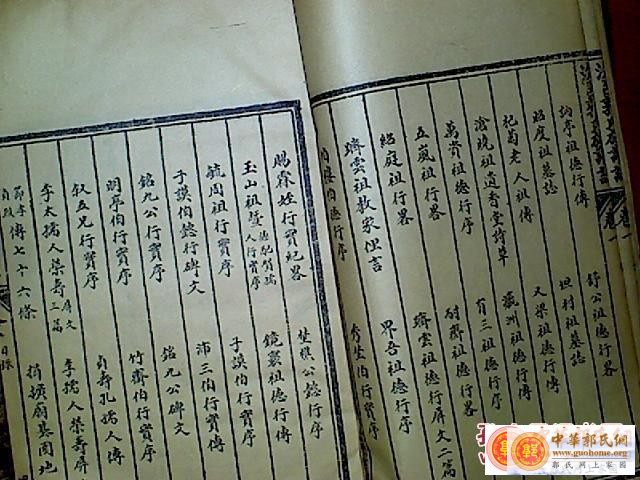 訥亭祖德行傳
舒公祖德行畧
昭度祖墓誌
坦村祖墓誌
杞菊老人祖傳
又梁祖德行傳
滄曉祖道香堂詩草
瀛洲祖德行傳
萬資祖德行序
有三祖德行序
五嵐祖行畧
耐齋祖德行畧
紹庭祖行畧
躋雲祖德行屏文二篇
躋雲祖教家俚言
界吾祖德行序
伯德行序
秀生伯行實序
賜霖姪行實紀畧
楚德行序
玉山祖暨人行實序
鏡襄祖德行傳
毓周祖行實序
子謨伯行實序
子謨伯懿行碑文
沛三伯行實傳
銘九公行實序
銘九公碑文
明亭伯行實序
竹齋伯行實序
叙五兄行實序
貞壽孔孺人傳
李太孺人榮壽屏文三篇
李孺人榮壽屏
節孝傳七十六條
墓圖地
目錄
中華郭氏網
www.guohome.com
郭氏網上家園